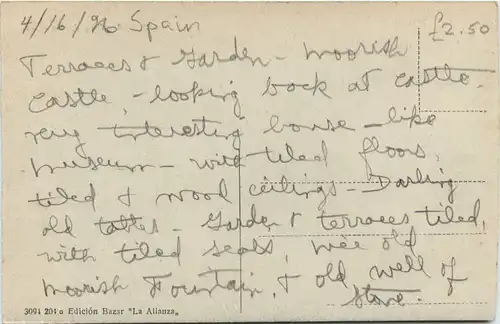 4/16/96 Spain
£2.50
Terraces & Garden - Moorish
Castle, - looking back at castle.
very interesting house - like
museum - with tiled floors,
tiled & wood ceilings - Darling
old tables - Garden & terraces tiled,
with tiled seats, nice old
Moorish Fountain, & old well of
stone.
3094 204 a Edición Bazar "La Alianza„